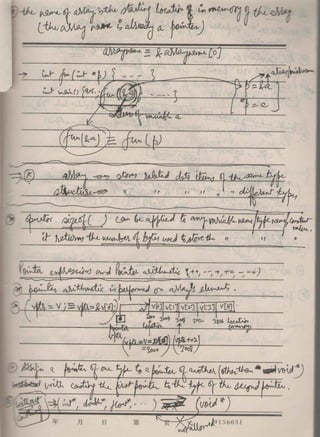 the name of array is the starting location of in memory of the array
(the array name is already a pointer)
arrayname ≡ &arrayname[0]
→ int fun(int *p) { - - - - }
int main() {
fun(&a) - - - - }
*p = &a
*p = a
address of variable a
fun(&a) ≡ fun(p)
array ⟹ stores related data items of the same type
structure ⟹ " " " " " different types
operator sizeof( ) can be applied to any variable name/type name/constant value.
it returns the number of bytes used to store the " "
Pointer expressions and Pointer arithmetic (++, --, +, +=, -, -=)
pointer arithmetic is performed on array's elements.
vptr = v; ≡ vptr = &v[0]
v[0] v[1] v[2] v[3] v[4]
location
memory
pointer
vptr
location
vptr = v = &v[0]
vptr += 2
Assign a pointer of one type to a pointer of another (other than void*)
with casting the first pointer to the type of the second pointer.
without int*, double*, float*, - - - (void*)
年 月 日 第 頁 156051